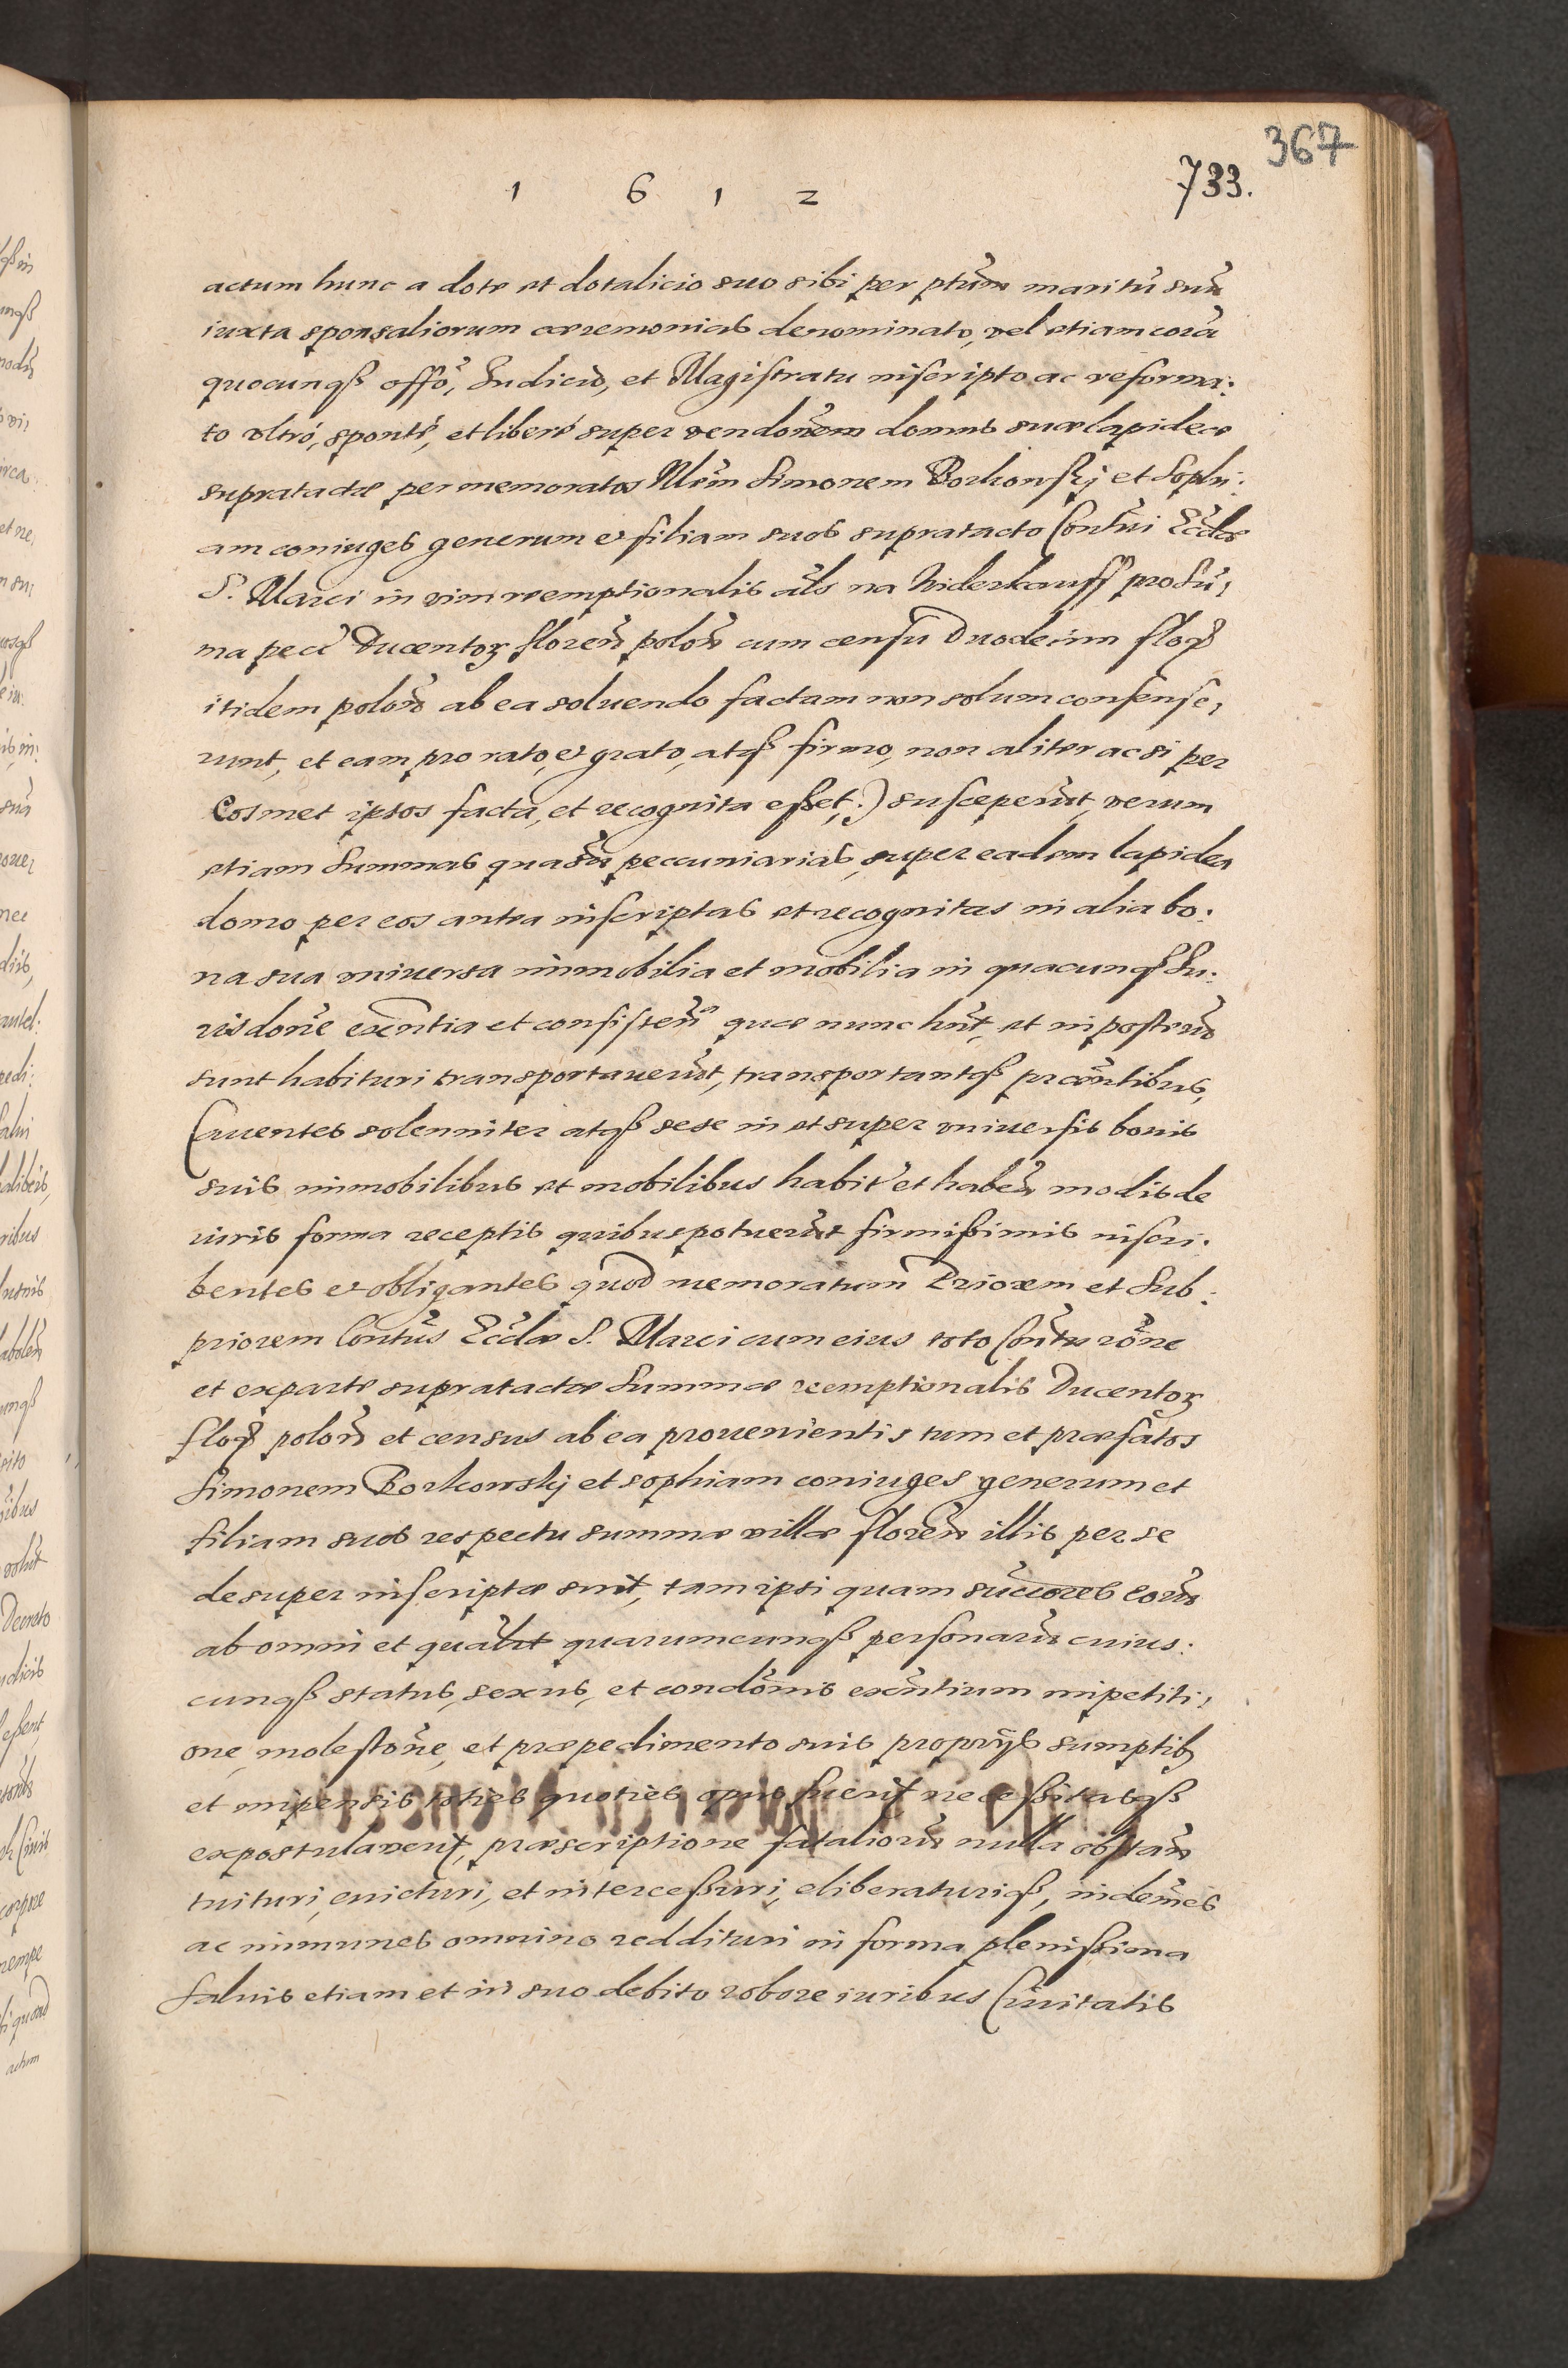 367
733.
1 6 1 2
actum hunc a dote et dotalicio suo sibi per ptūm maritū suū
iuxta sponsaliorum cæremonias denominato, vel etiam corā
quocunqß offō, Iudicio, et Magistratu inscripto ac reforma:
to vltrò, spontè, et liberè super vendonēm domus suæ lapideæ
supratactæ per memoratos Simonem Borkowskj et Sophi:
am coniuges generum et filiam suos supratacto Contūi Eccłæ
S. Marci in vim reemptionalis als na Widerkauff pro sū,
ma pecū Ducentoꝝ floren̄ polon̄ cum censu Duodecim floꝝ
itidem polon̄ ab ea soluendo factam non solum consense,
runt, et eam pro rato, et grato, atqß firmo, non aliter ac si per
Eosmet ipsos facta, et recognita eßet,:) susceperūt, verum
etiam Summas quasuis peccuniarias, super eadem lapidea
domo per eos antea inscriptas et recognitas in alia bo:
na sua vniuersa immobilia et mobilia in quacunqß Iu:
risdone exn̄tia et consisten̄ quæ nunc hn̄t, et in posterū
sunt habituri transportauerūt, transportantqß præn̄tibus,
Cauentes solenniter atqß sese in et super vniuersis bonis
suis immobilibus et mobilibus habit̄ et haben̄ modis de
iuris forma receptis quibus potuerūt firmißimis inscri:
bentes et obligantes quod memoratum Priorem et Sub:
priorem Contūs Eccłæ S. Marci cum eius toto Contu rōne
et ex parte supratactæ Summæ reemptionalis Ducentoꝝ
floꝝ polon̄ et census ab ea prouenientis tum et præfatos
Simonem Borkowskj et sophiam coniuges generum et
filiam suos respectu summæ millæ floren̄ illis per se
desuper inscriptæ sint, tam ipsi quam succores eorū
ab omni et qualibt quarumcunqß personarū cuius:
cunqß status, sexus, et condonis exn̄tium impetiti,
one, molestone, et præpedimento suis proprijs sumptibꝫ
et impensis toties quoties opus fuerit necessitasqß
expostulauerit, præscriptione fataliorū nulla obstan̄
tuituri, euicturi, et interceßuri, eliberaturiqß, indemnes
ac immunes omnino reddituri in forma plenißima
Saluis etiam et in suo debito robore iuribus Ciuitatis